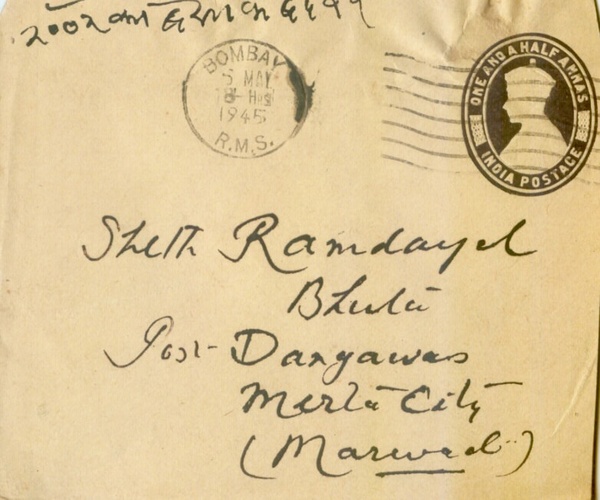 २००२
BOMBAY
5 MAY
1945
R.M.S.
ONE AND A HALF ANNAS
INDIA POSTAGE
Sheth Ramdayal
Bhutā
Post- Dangawas
Mertā City
(Marwad)